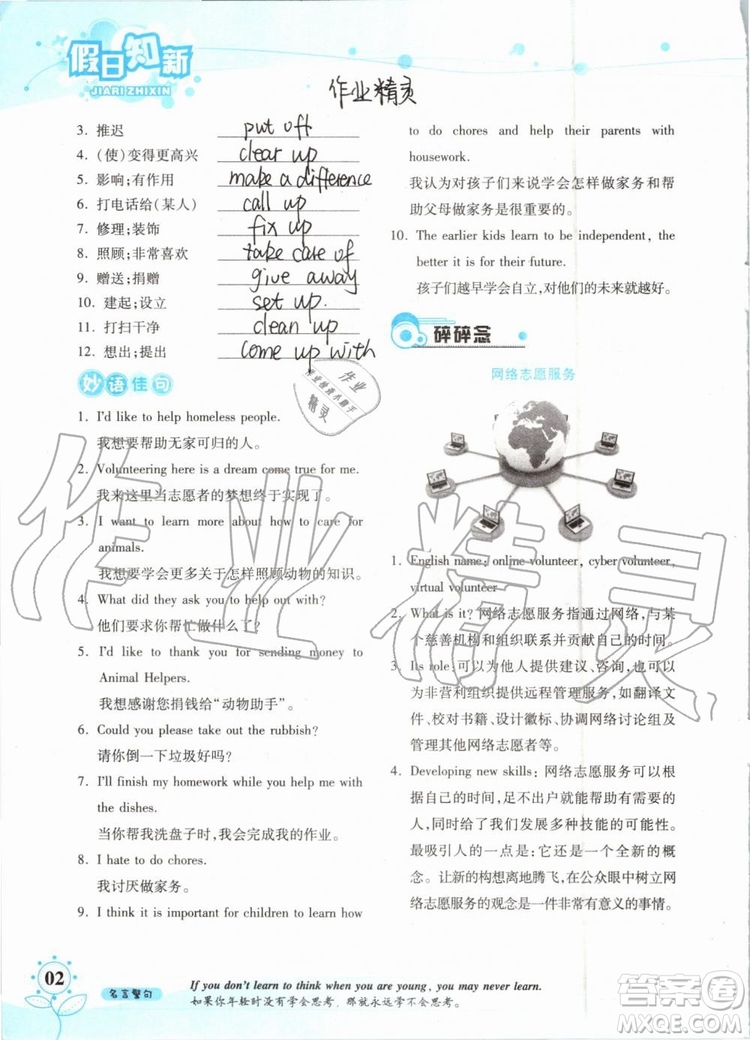 假日知新
JIARI ZHIXIN
作业精灵
3. 推迟 put off
4. (使)变得更高兴 clear up
5. 影响;有作用 make a difference
6. 打电话给(某人) call up
7. 修理;装饰 fix up
8. 照顾;非常喜欢 take care of
9. 赠送;捐赠 give away
10. 建起;设立 set up.
11. 打扫干净 clean up
12. 想出;提出 come up with
妙语佳句
1. I'd like to help homeless people.
我想要帮助无家可归的人。
2. Volunteering here is a dream come true for me.
我来这里当志愿者的梦想终于实现了。
3. I want to learn more about how to care for
animals.
我想要学会更多关于怎样照顾动物的知识。
4. What did they ask you to help out with?
他们要求你帮忙做什么了?
5. I'd like to thank you for sending money to
Animal Helpers.
我想感谢您捐钱给“动物助手”。
6. Could you please take out the rubbish?
请你倒一下垃圾好吗?
7. I'll finish my homework while you help me with
the dishes.
当你帮我洗盘子时,我会完成我的作业。
8. I hate to do chores.
我讨厌做家务。
9. I think it is important for children to learn how
to do chores and help their parents with
housework.
我认为对孩子们来说学会怎样做家务和帮
助父母做家务是很重要的。
10. The earlier kids learn to be independent, the
better it is for their future.
孩子们越早学会自立,对他们的未来就越好。
碎碎念
网络志愿服务
1. English name: online volunteer, cyber volunteer,
virtual volunteer
2. What is it? 网络志愿服务指通过网络,与某
个慈善机构和组织联系并贡献自己的时间。
3. Its role:可以为他人提供建议、咨询,也可以
为非营利组织提供远程管理服务,如翻译文
件、校对书籍、设计徽标、协调网络讨论组及
管理其他网络志愿者等。
4. Developing new skills: 网络志愿服务可以
根据自己的时间,足不出户就能帮助有需要的
人,同时给予了我们发展多种技能的可能性。
最吸引人的一点是:它还是一个全新的概
念。让新的构想离地腾飞,在公众眼中树立网
络志愿服务的观念是一件非常有意义的事情。
02
名言警句
If you don't learn to think when you are young, you may never learn.
如果你年轻时没有学会思考,那就永远学不会思考。
作业精灵
答案圈
MXQE.COM